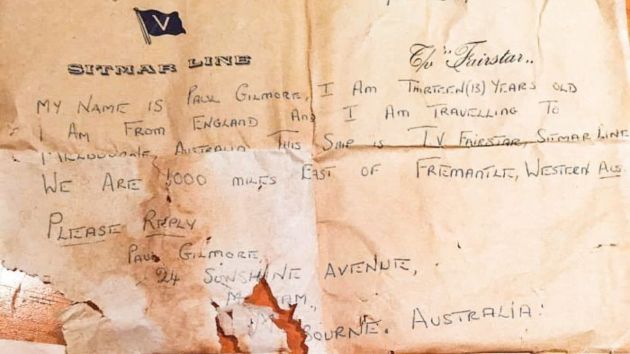 V
SITMAR LINE
T/V "Fairstar"
MY NAME IS PAUL GILMORE, I AM THIRTEEN (13) YEARS OLD
I AM FROM ENGLAND AND I AM TRAVELLING TO
MELBOURNE, AUSTRALIA THIS SHIP IS T.V FAIRSTAR, SITMAR LINE
WE ARE 1000 MILES EAST OF FREMANTLE, WESTERN AUS
PLEASE REPLY
PAUL GILMORE,
24 SUNSHINE AVENUE,
BOURNE. AUSTRALIA.